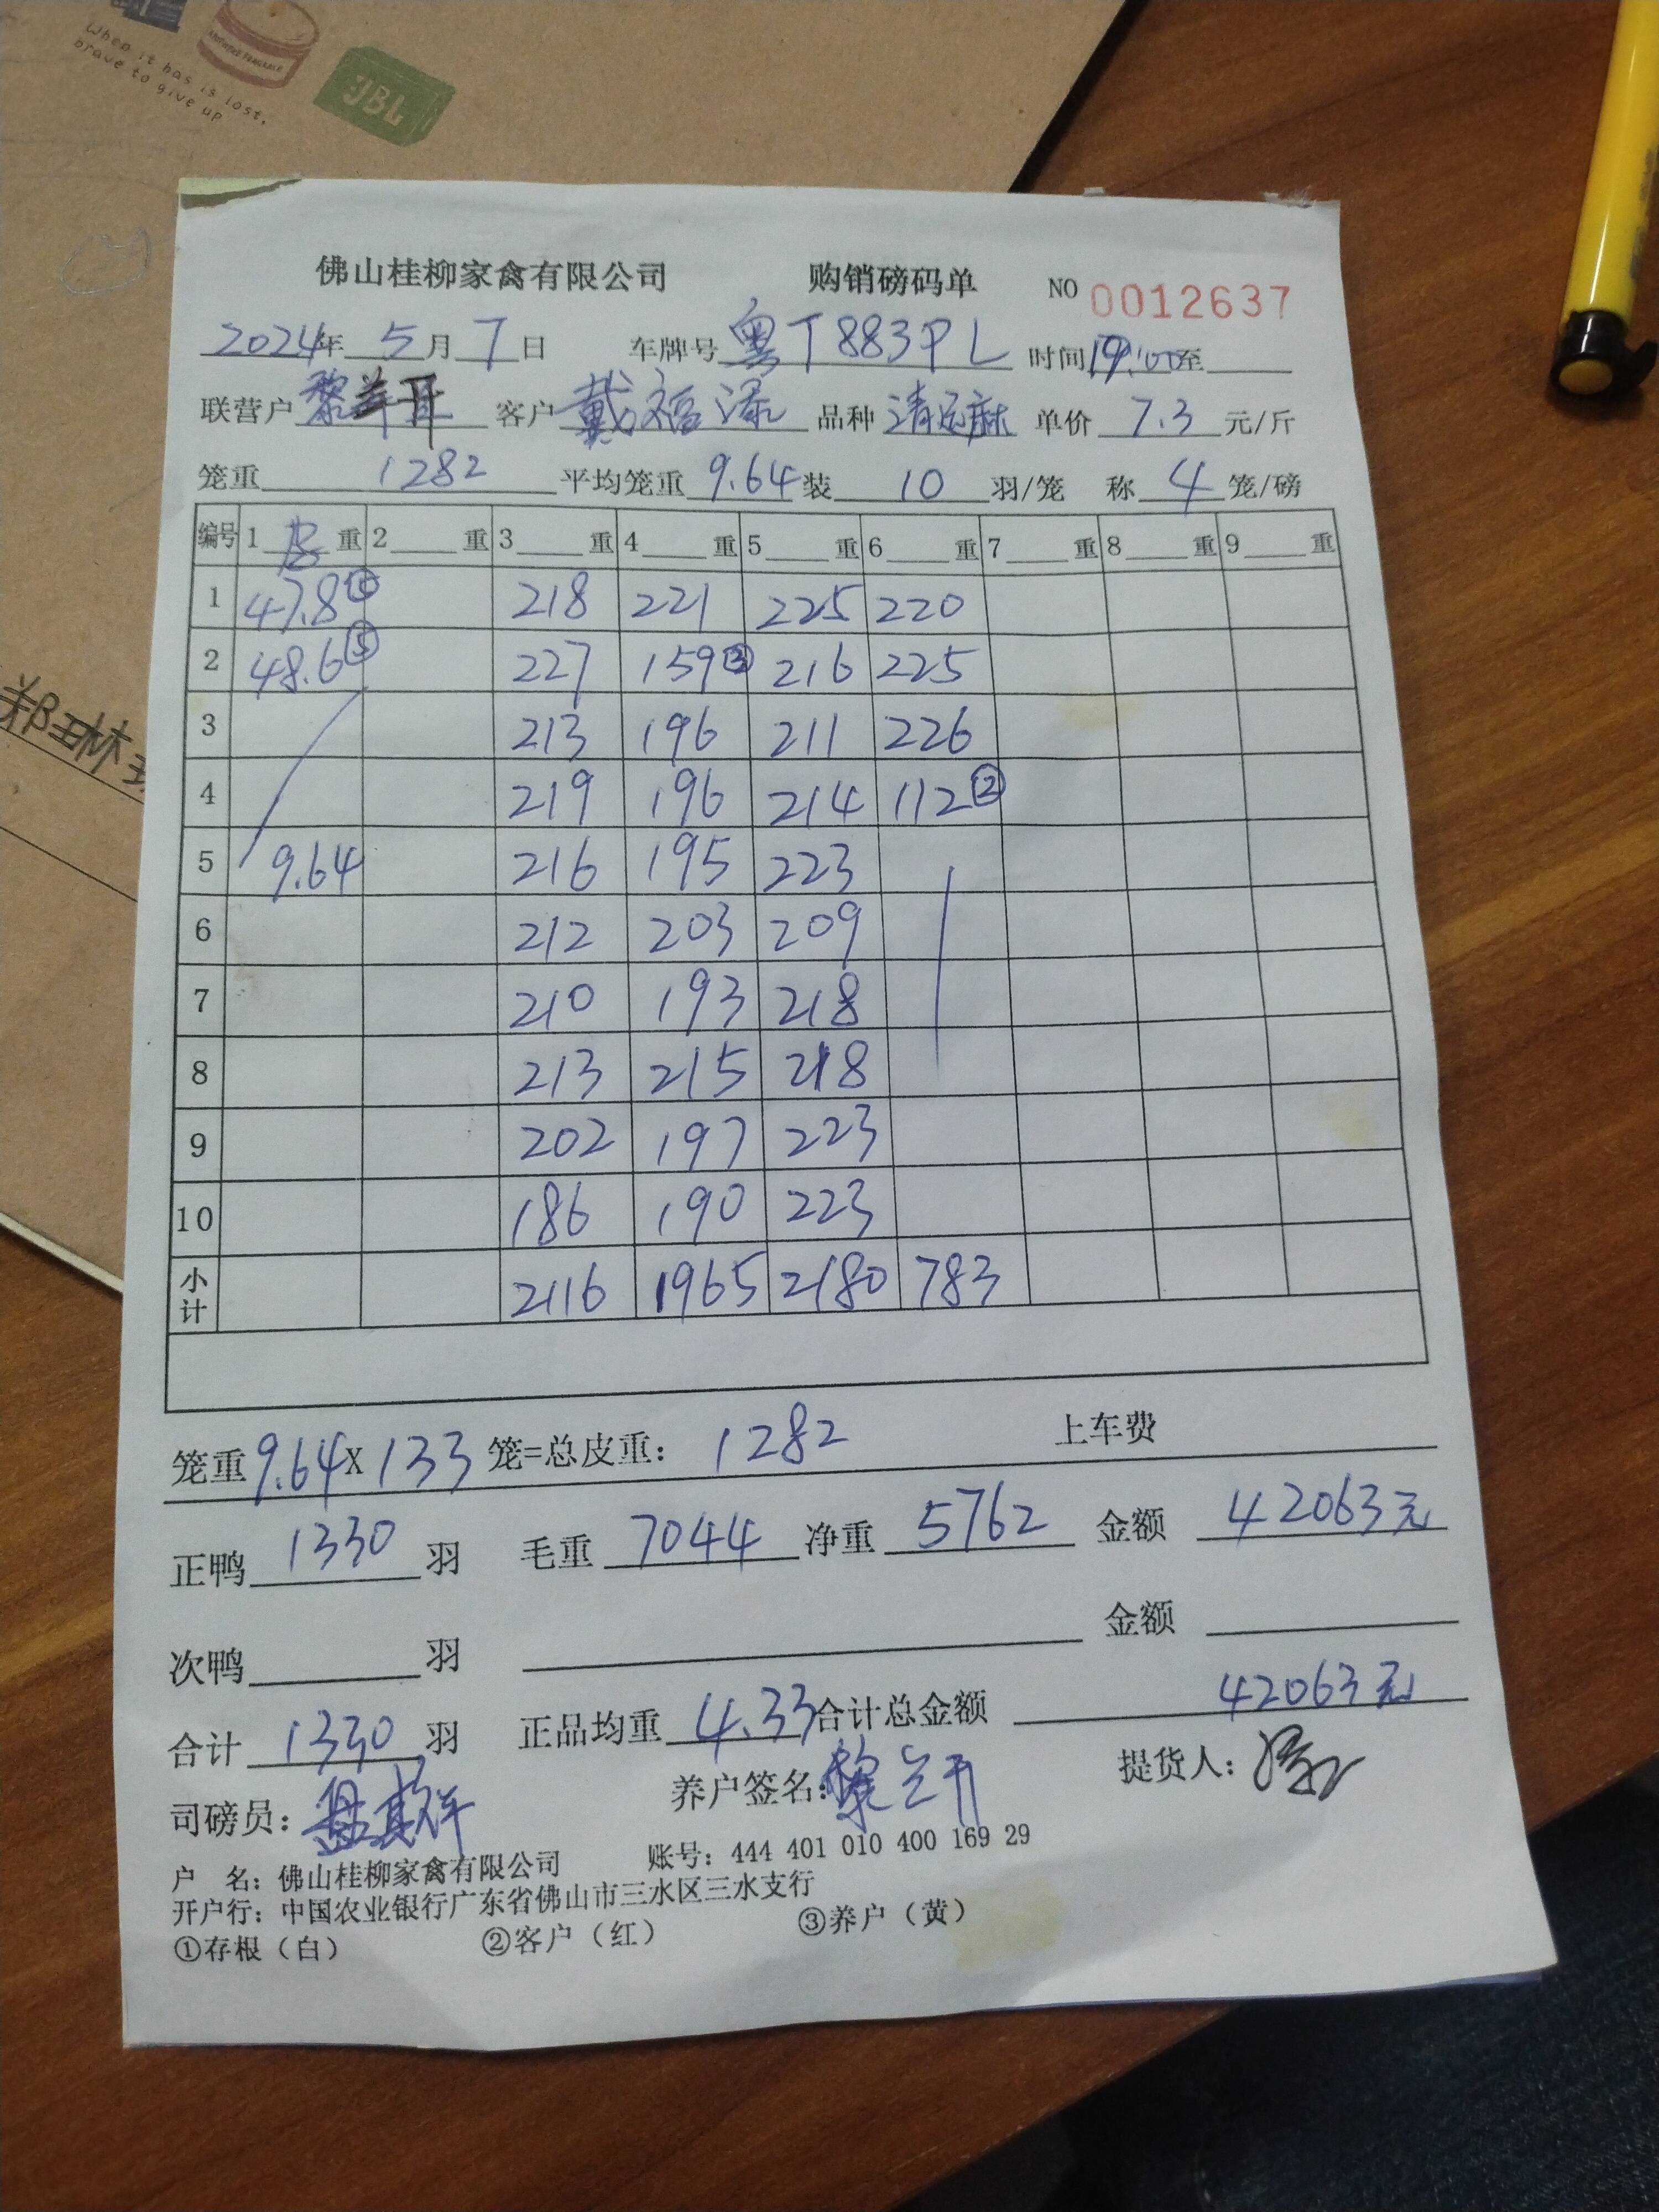 When it has is lost,
brave to give up
JBL
郑琳
佛山桂柳家禽有限公司 购销磅码单 NO 0012637
2024年 5月 7日 车牌号 粤T883PL 时间 19:00至
联营户 黎兰开 客户 戴福添 品种 清远麻 单价 7.3 元/斤
笼重 1282 平均笼重 9.64 装 10 羽/笼 称 4 笼/磅
编号 1 皮 重 2 重 3 重 4 重 5 重 6 重 7 重 8 重 9 重
1 47.8 218 221 225 220
2 48.6⑤ 227 159③ 216 225
3 213 196 211 226
4 219 196 214 112②
5 9.64 216 195 223
6 212 203 209
7 210 193 218
8 213 215 218
9 202 197 223
10 186 190 223
小计 2116 1965 2180 783
笼重 9.64 X 133 笼=总皮重： 1282 上车费
正鸭 1330 羽 毛重 7044 净重 5762 金额 42063元
次鸭 羽 金额
合计 1330 羽 正品均重 4.33 合计总金额 42063元
司磅员： 养户签名：黎兰开 提货人：
户 名：佛山桂柳家禽有限公司 账号：444 401 010 400 169 29
开户行：中国农业银行广东省佛山市三水区三水支行
①存根（白） ②客户（红） ③养户（黄）